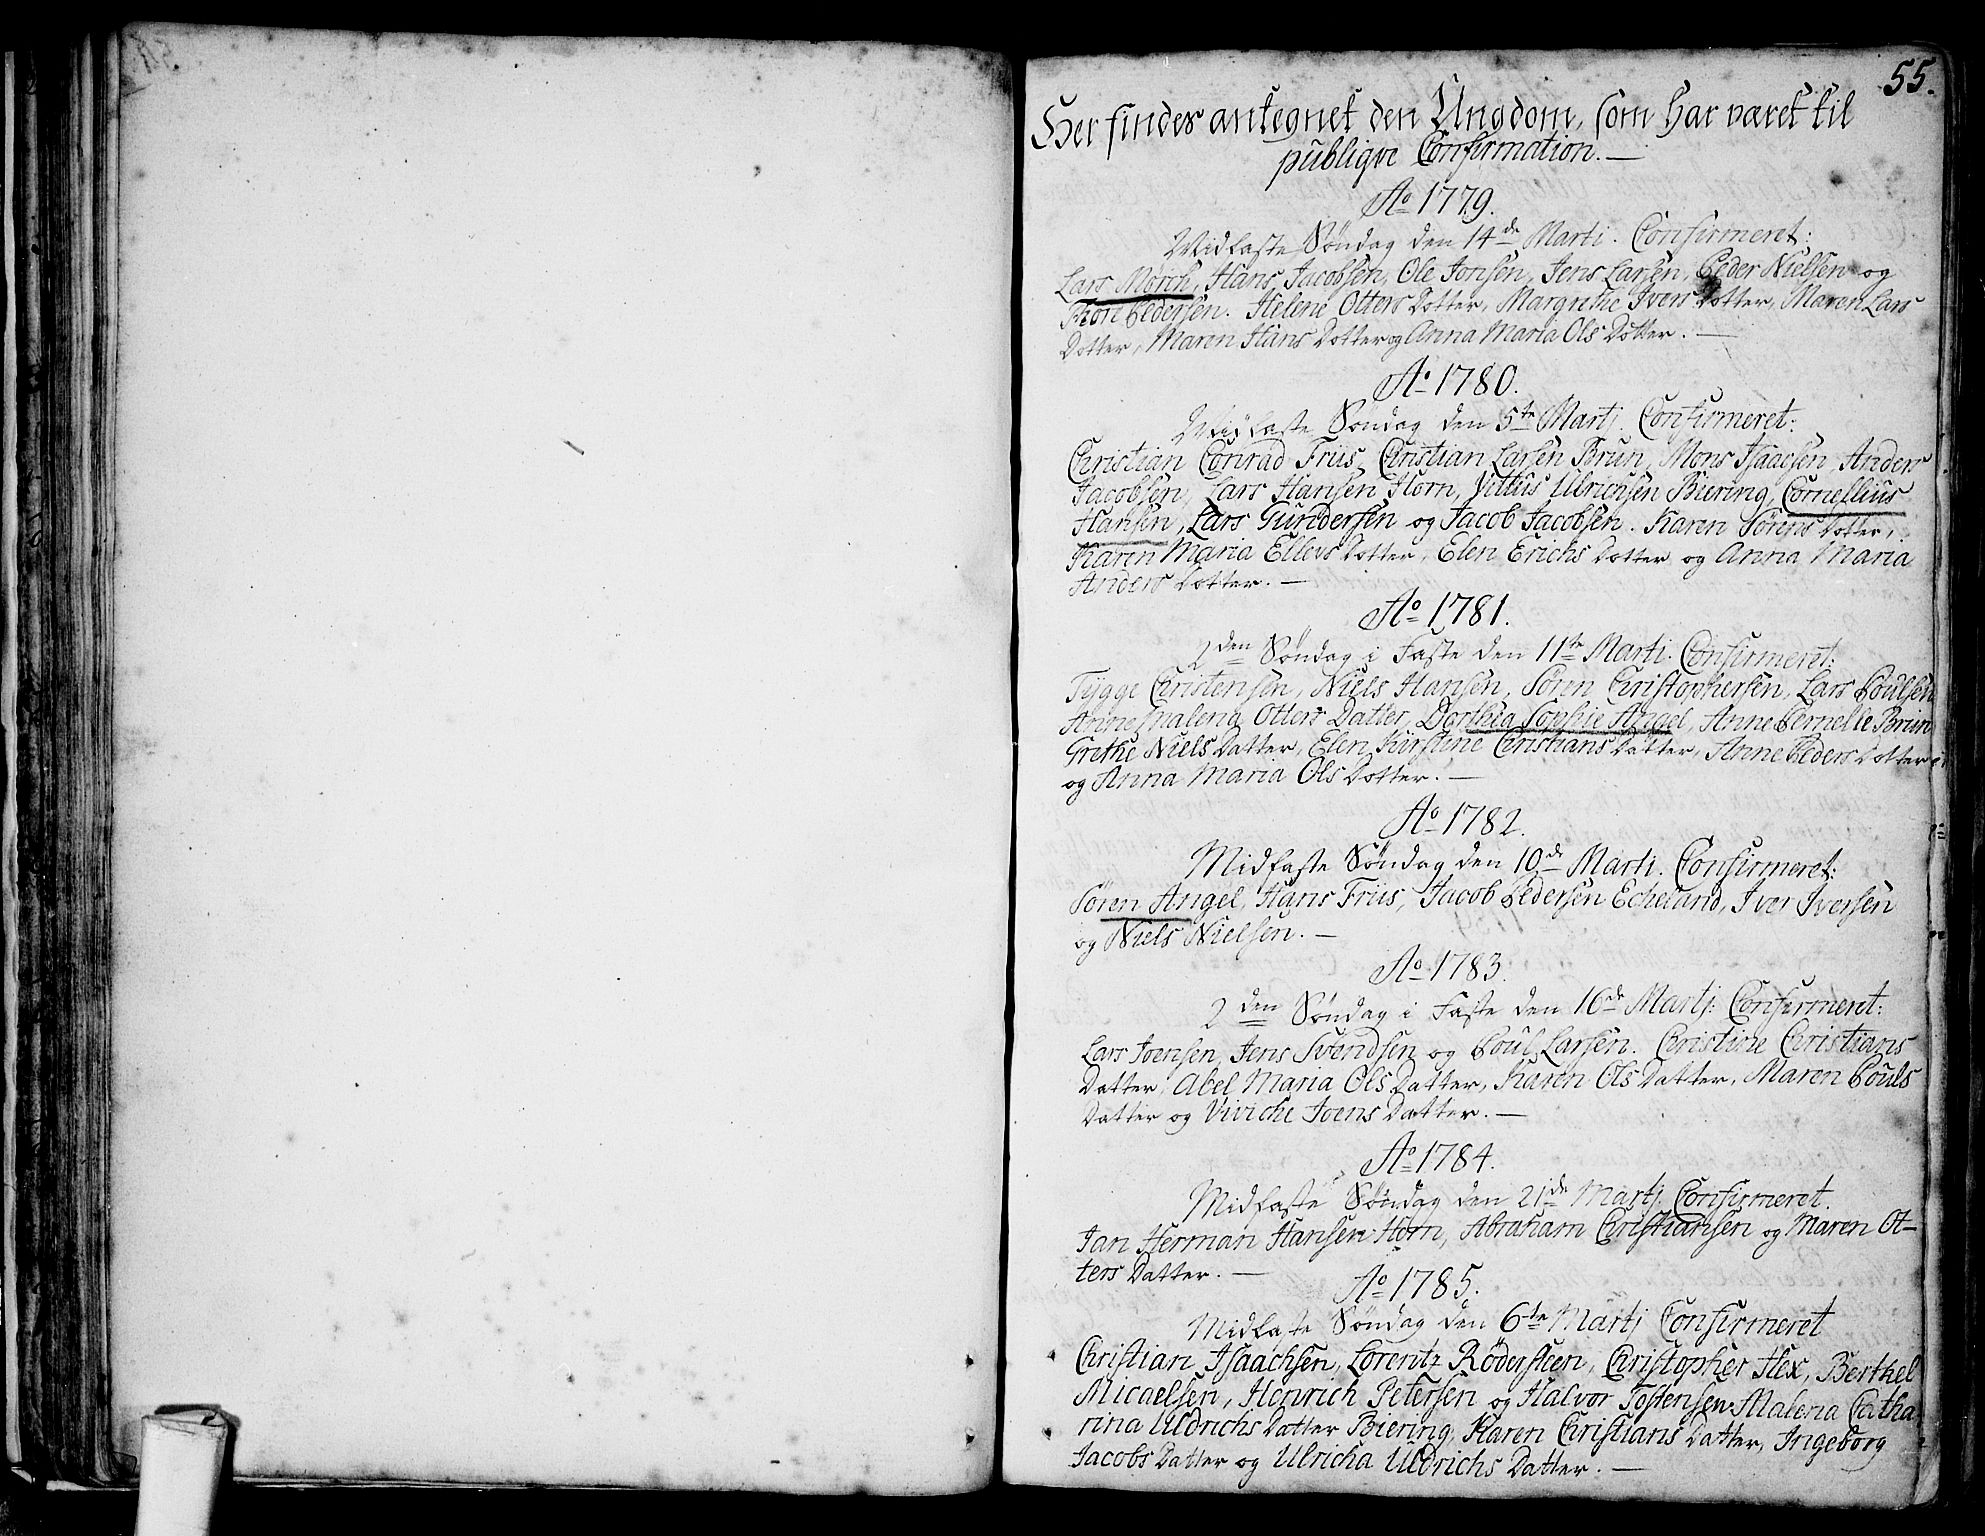 55.
Her findes antegnet den Ungdom, som har været til
publiqve Confirmation. —
Ao 1779.
Midfaste Søndag den 14de Marti. Confirmeret:
Lars Mørch, Hans Jacobsen, Ole Jonsen, Jens Larsen, Peder Nielsen og
Thore Pedersen. Helene Otters Dotter, Margrethe Ivers Dotter, Maren Lars
Dotter, Maren Hans Dotter og Anna Maria Ols Dotter. —
Ao 1780.
Midfaste Søndag den 5te Martj. Confirmeret:
Christian Conrad Friis, Christian Larsen Brun, Mons Isaacsen, Anders
Jacobsen, Lars Hansen Horn, Vittus Ulrichsen Biering, Cornellius
Hansen, Lars Gundersen og Jacob Jacobsen. Karen Sørens Dotter,
Karen Maria Ellevs Dotter, Elen Erichs Dotter og Anna Maria
Anders Dotter. —
Ao 1781.
2den Søndag i Faste den 11te Marti. Confirmeret:
Tygge Christensen, Niels Hansen, Søren Christophersen, Lars Poulsen,
Anne Malena Otters Datter, Dorthea Sophie Angel, Anne Pernelle Brun
Grethe Niels Datter, Elen Kirstine Christians Datter, Anne Peders Dotter
og Anna Maria Ols Dotter. —
Ao 1782.
Midfaste Søndag den 10de Marti. Confirmeret:
Søren Angel, Hans Friis, Jacob Pedersen Echeland, Iver Iversen
og Niels Nielsen. —
Ao 1783.
2den Søndag i Faste den 16de Martj: Confirmeret:
Lars Joensen, Jens Svendsen og Poul Larsen. Christine Christians
Datter, Abel Maria Ols Datter, Karen Ols Datter, Maren Pouls
Datter og Viviche Joens Datter. —
Ao 1784.
Midfaste Søndag den 21de Martj. Confirmeret.
Jan Herman Hansen Horn, Abraham Christiansen og Maren Ot-
ters Datter. —
Ao 1785.
Midfaste Søndag den 6te Martj Confirmeret
Christian Isaachsen, Lorentz Rødersteen, Christopher Hex, Berthel
Micaelsen, Henrich Petersen og Halvor Tostensen. Malena Catha
rina Uldrichs Datter Biering, Karen Christians Datter, Ingeborg
Jacobs Datter og Ulricha Uldrichs Datter. —